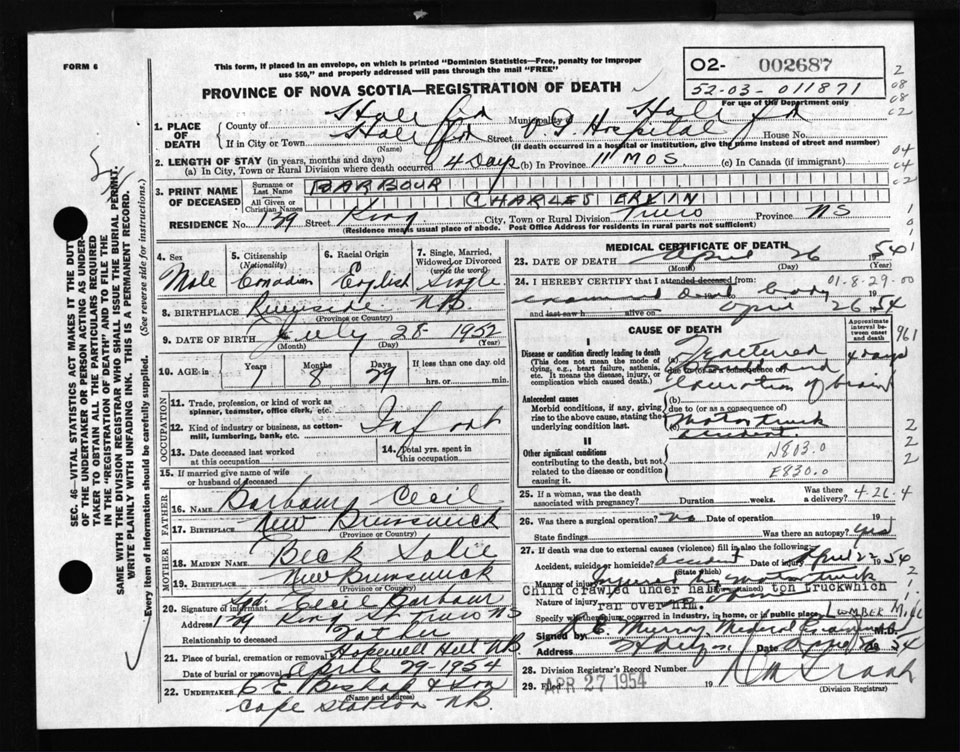 FORM 6
This form, if placed in an envelope, on which is printed "Dominion Statistics—Free, penalty for improper
use $50," and properly addressed will pass through the mail "FREE"
O2- 002687
52-03-011871
For use of the Department only
PROVINCE OF NOVA SCOTIA—REGISTRATION OF DEATH
1. PLACE OF DEATH
County of Municipality of
If in City or Town Street V. G. Hospital House No.
(Name) (If death occurred in a hospital or institution, give the name instead of street and number)
2. LENGTH OF STAY (in years, months and days)
(a) In City, Town or Rural Division where death occurred 4 days (b) In Province 11 MOS. (c) In Canada (if immigrant)
3. PRINT NAME OF DECEASED
Surname or Last Name BARBOUR
All Given or Christian Names CHARLES ERVIN
RESIDENCE No. 129 Street King City, Town or Rural Division Truro Province NS
(Residence means usual place of abode. Post Office Address for residents in rural parts not sufficient)
4. Sex 5. Citizenship (Nationality) 6. Racial Origin 7. Single, Married, Widowed or Divorced (write the word)
Male Canadian English Single
8. BIRTHPLACE Riverside NB
(Province or Country)
9. DATE OF BIRTH July 28 1952
(Month) (Day) (Year)
10. AGE in Years Months Days If less than one day old
1 8 29 hrs. or min.
OCCUPATION
11. Trade, profession, or kind of work as spinner, teamster, office clerk, etc.
12. Kind of industry or business, as cotton-mill, lumbering, bank, etc. Infant
13. Date deceased last worked at this occupation 14. Total yrs. spent in this occupation
15. If married give name of wife or husband of deceased
FATHER
16. NAME Barbour Cecil
17. BIRTHPLACE New Brunswick
(Province or Country)
MOTHER
18. MAIDEN NAME Beck
19. BIRTHPLACE New Brunswick
(Province or Country)
20. Signature of informant Cecil Barbour
Address 129 King St. Truro NS
Relationship to deceased Father
21. Place of burial, cremation or removal Hopewell Hill NB
Date of burial or removal April 29-1954
22. UNDERTAKER & Son
(Name and address)
Cape Station NB.
MEDICAL CERTIFICATE OF DEATH
23. DATE OF DEATH April 26 1954
(Month) (Day) (Year)
24. I HEREBY CERTIFY that I attended deceased from: 01-8-29-00
examined dead body 19
and last saw h alive on April 26 1954
CAUSE OF DEATH
Approximate interval between onset and death
I
Disease or condition directly leading to death
(This does not mean the mode of dying, e.g., heart failure, asthenia, etc. It means the disease, injury, or complication which caused death.)
(a) Fractured
due to (or as a consequence of)
laceration of brain
4 days
961
Antecedent causes
Morbid conditions, if any, giving rise to the above cause, stating the underlying condition last.
(b)
due to (or as a consequence of)
(c) Motor truck
accident
II
Other significant conditions
contributing to the death, but not related to the disease or condition causing it.
N803.0
E830.0
25. If a woman, was the death associated with pregnancy? Duration weeks. Was there a delivery? 4-26-4
26. Was there a surgical operation? no Date of operation 19
State findings Was there an autopsy? yes
27. If death was due to external causes (violence) fill in also the following:
Accident, suicide or homicide? accident Date April 22 1954
(State which)
Manner of injury Injured by motor truck
Child crawled under half ton truckwhich
Nature of injury ran over him.
Specify whether injury occurred in industry, in home, or in public place LUMBER MILL
Signed by E. Murray Medical Examiner M.D.
Address Halifax Date 1954
28. Division Registrar's Record Number
29. Filed APR 27 1954 19
(Division Registrar)
SEC. 46—VITAL STATISTICS ACT MAKES IT THE DUTY
OF THE UNDERTAKER OR PERSON ACTING AS UNDER-
TAKER TO OBTAIN ALL THE PARTICULARS REQUIRED
IN THE "REGISTRATION OF DEATH" AND TO FILE THE
SAME WITH THE DIVISION REGISTRAR WHO SHALL ISSUE THE BURIAL PERMIT.
WRITE PLAINLY WITH UNFADING INK. THIS IS A PERMANENT RECORD.
Every item of information should be carefully supplied. (See reverse side for instructions.)